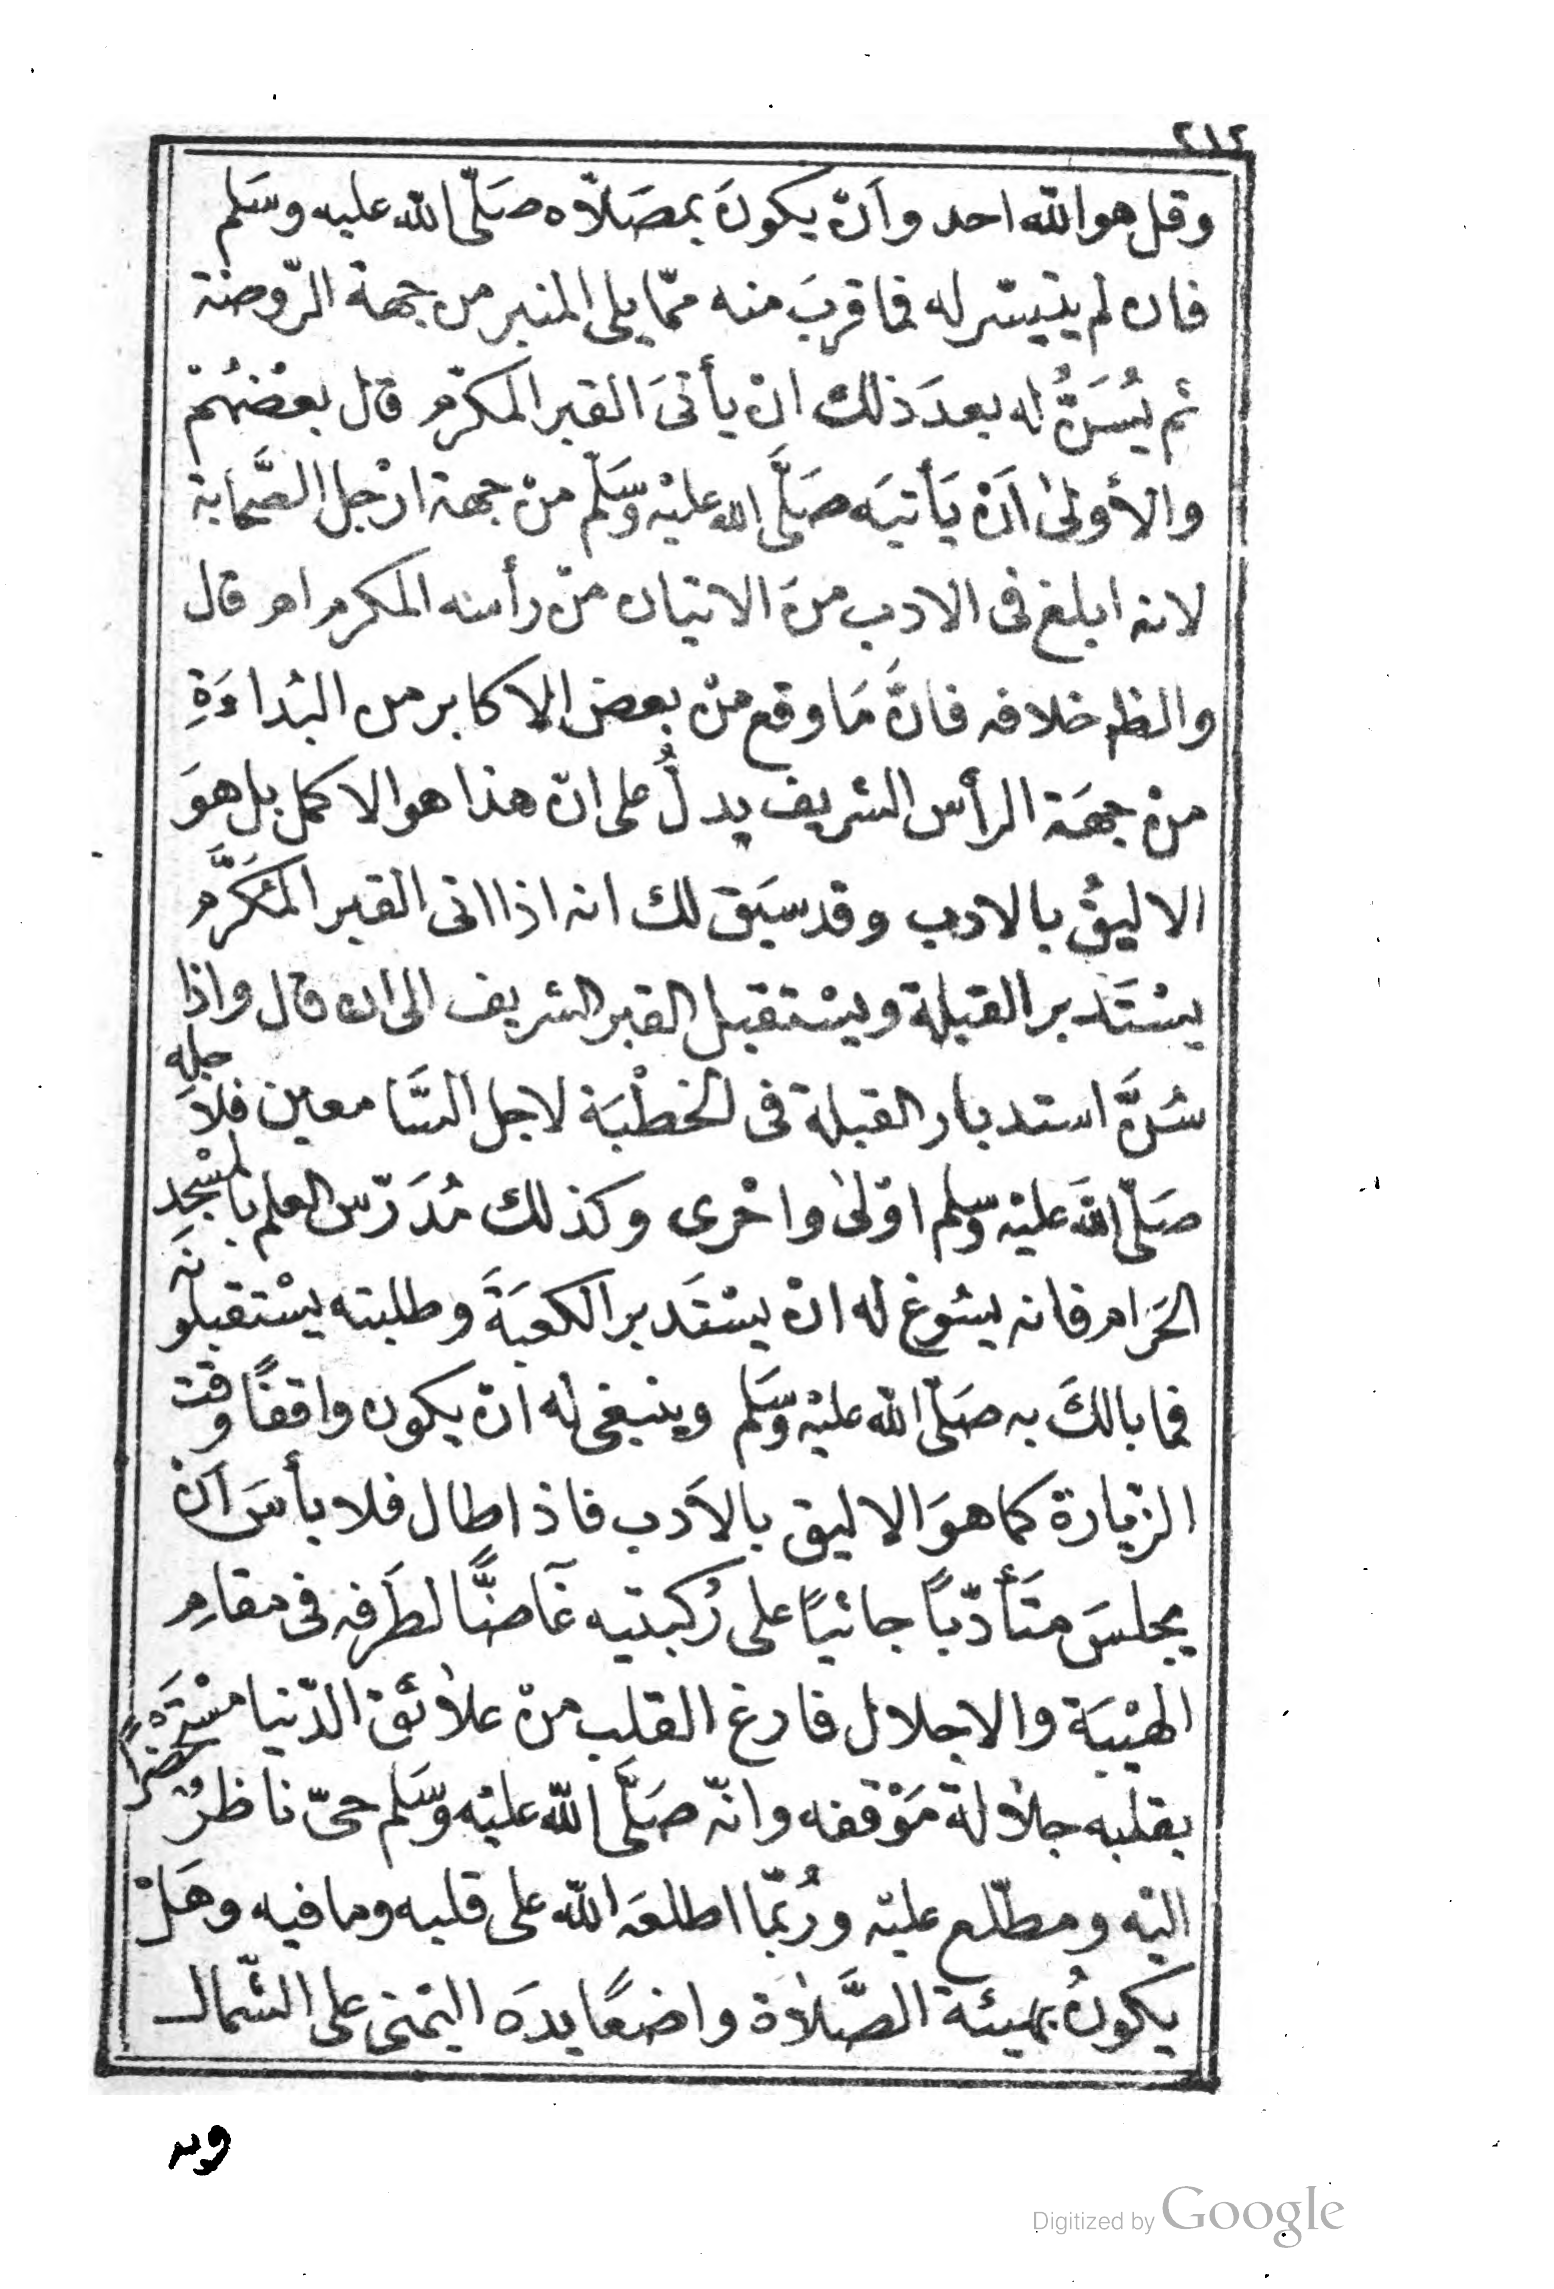 ٢١٢
وقل هو الله احد واَنْ يكونَ بمصَلاّه صَلّى الله عليه وسَلم
فان لم يتيسّر له فما قربَ منه ممّا يلى المنبر من جهة الرّوضة
ثم يُسَنُّ له بعدَ ذلك انْ يأتىَ القبر المكرّم قال بعضُهُمْ
والأولىٰ اَنْ يَأتيَه صَلَّى الله عليْه وَسَلّم منْ جهة ارْجل الصَّحابة
لانه ابلغ فى الادب منَ الاتيان منْ رأسه المكرم اه قال
والظ خلافه فانَّ مَا وقع منْ بعض الاكابر من البُداءَةِ
منْ جهَة الرأس الشريف يدلُّ على انّ هذا هو الاكمل بل هوَ
الاليقُ بالادب وقد سبَق لك انه اذا اتى القبر المُكَرَّم
يسْتَدبر القبلة ويسْتقبل القبر الشريف الى ان قال واذا
سُنَّ استدبار القبلة فى الخطْبَة لاجل السَّامعين فلاَجله
صَلّى الله عليْه وسلم اوْلىٰ واحْرى وكذلك مُدَرّس العلم بالمسْجدِ
الحَرام فانه يسُوغ له انْ يسْتَدبر الكعبَةَ وطلبته يسْتقبلونَه
فما بالكَ به صَلّى الله عليْه وسَلم وينبغى له انْ يكون واقفًا وقت
الزّيارة كما هوَ الاليق بالاَدب فاذا طال فلا بأسَ اَنْ
يجلسَ متَأدّبًا جاثيًا على رُكبتيه غَاضًّا لطَرفه فى مقامِ
الهيْبَة والاجلال فارغ القلب منْ علاٰئق الدّنيا مسْتَحضرًا
بقلبه جلاٰلة مَوْقفه وانّه صَلَّى الله عليْه وسَّلم حىّ ناظرٌ
اليْه ومطّلع عليْه ورُبّما اطلعَه الله على قلبه وما فيه وهَلْ
يكونُ بهيئة الصَّلاٰة واضعًا يدَه اليمْنى على الشّمال
Digitized by Google